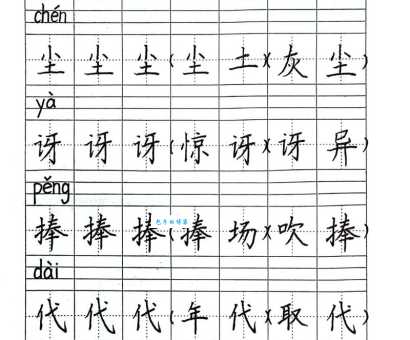 chén
尘 尘 尘(尘 土)(灰 尘)
yà
讶 讶 讶(惊 讶)(讶 异)
pěng
捧 捧 捧(捧 场)(吹 捧)
dài
代 代 代(年 代)(取 代)